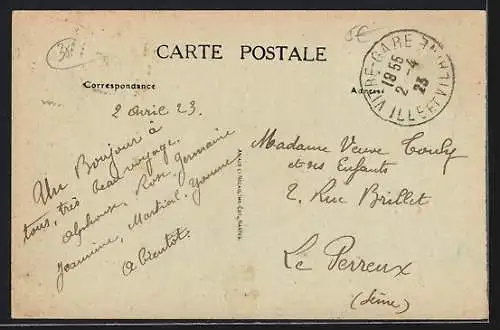 CARTE POSTALE
Correspondance
Adresse
VITRE-GARE
ILLE-ET-VILAINE
18 55
2 -4
23
2 Avril 23.
Un Bonjour à
tous, très beau voyage.
Alphonse, Rose, Germaine
Jeannine, Martial, Yvonne
A bientôt.
Madame Veuve Couly
et ses Enfants
2. Rue Brillet
Le Perreux
(Seine)